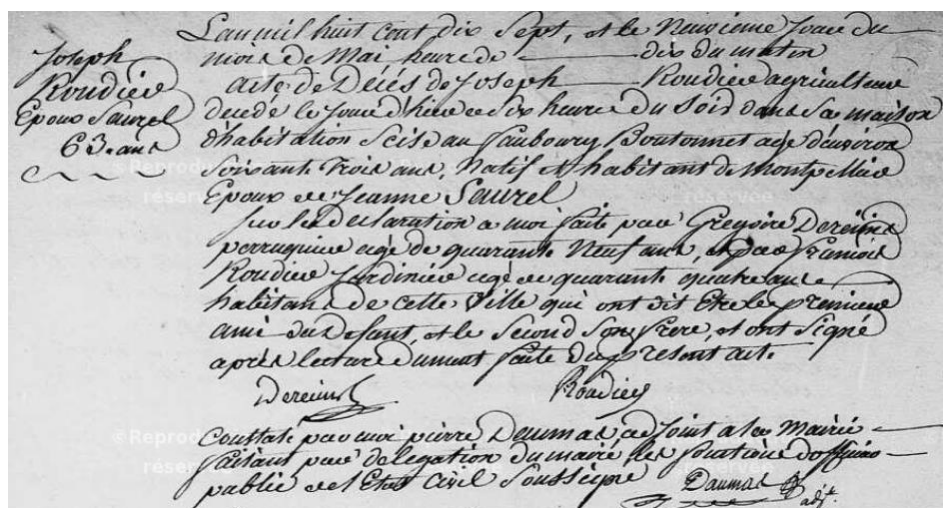 Joseph
Roudier
Epoux Saurel
63. ans
L'an mil huit cent dix sept, et le Neuvieme Jour du
mois de Mai heure de dix du matin
acte de Décés de Joseph Roudier agriculteur
decedé le Jour d'hier a six heure du Soir dans sa maison
d'habitation Scise au faubourg Boutonnet agé d'environ
soixante trois ans, natif et habitant de Montpellier
Epoux de Jeanne Saurel
sur la declaration a moi faite par Gregoire Dereims
perruquier agé de quarante Neuf ans, et par francois
Roudier Jardinier agé de quarante quatre ans
habitans de cette Ville qui ont dit Etre le premier
ami du Defunt, et le Second Son frere, et ont Signé
après lecture dument faite du present acte
Dereims Roudier
Constaté par moi pierre Daumas adjoint a la Mairie
faisant par delegation du maire les fonctions d'officier
public de l'Etat Civil Soussigné Daumas adjt.